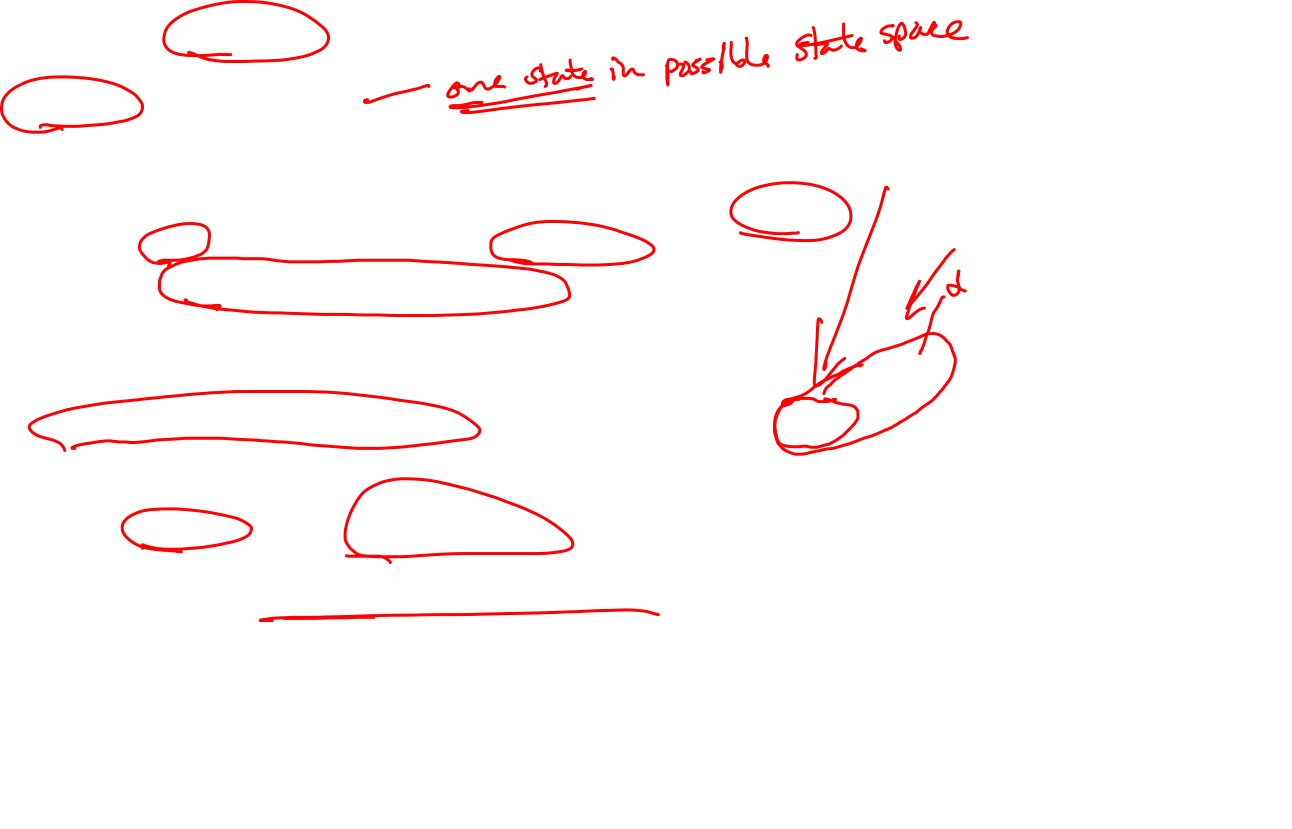 one state in possible state space
d